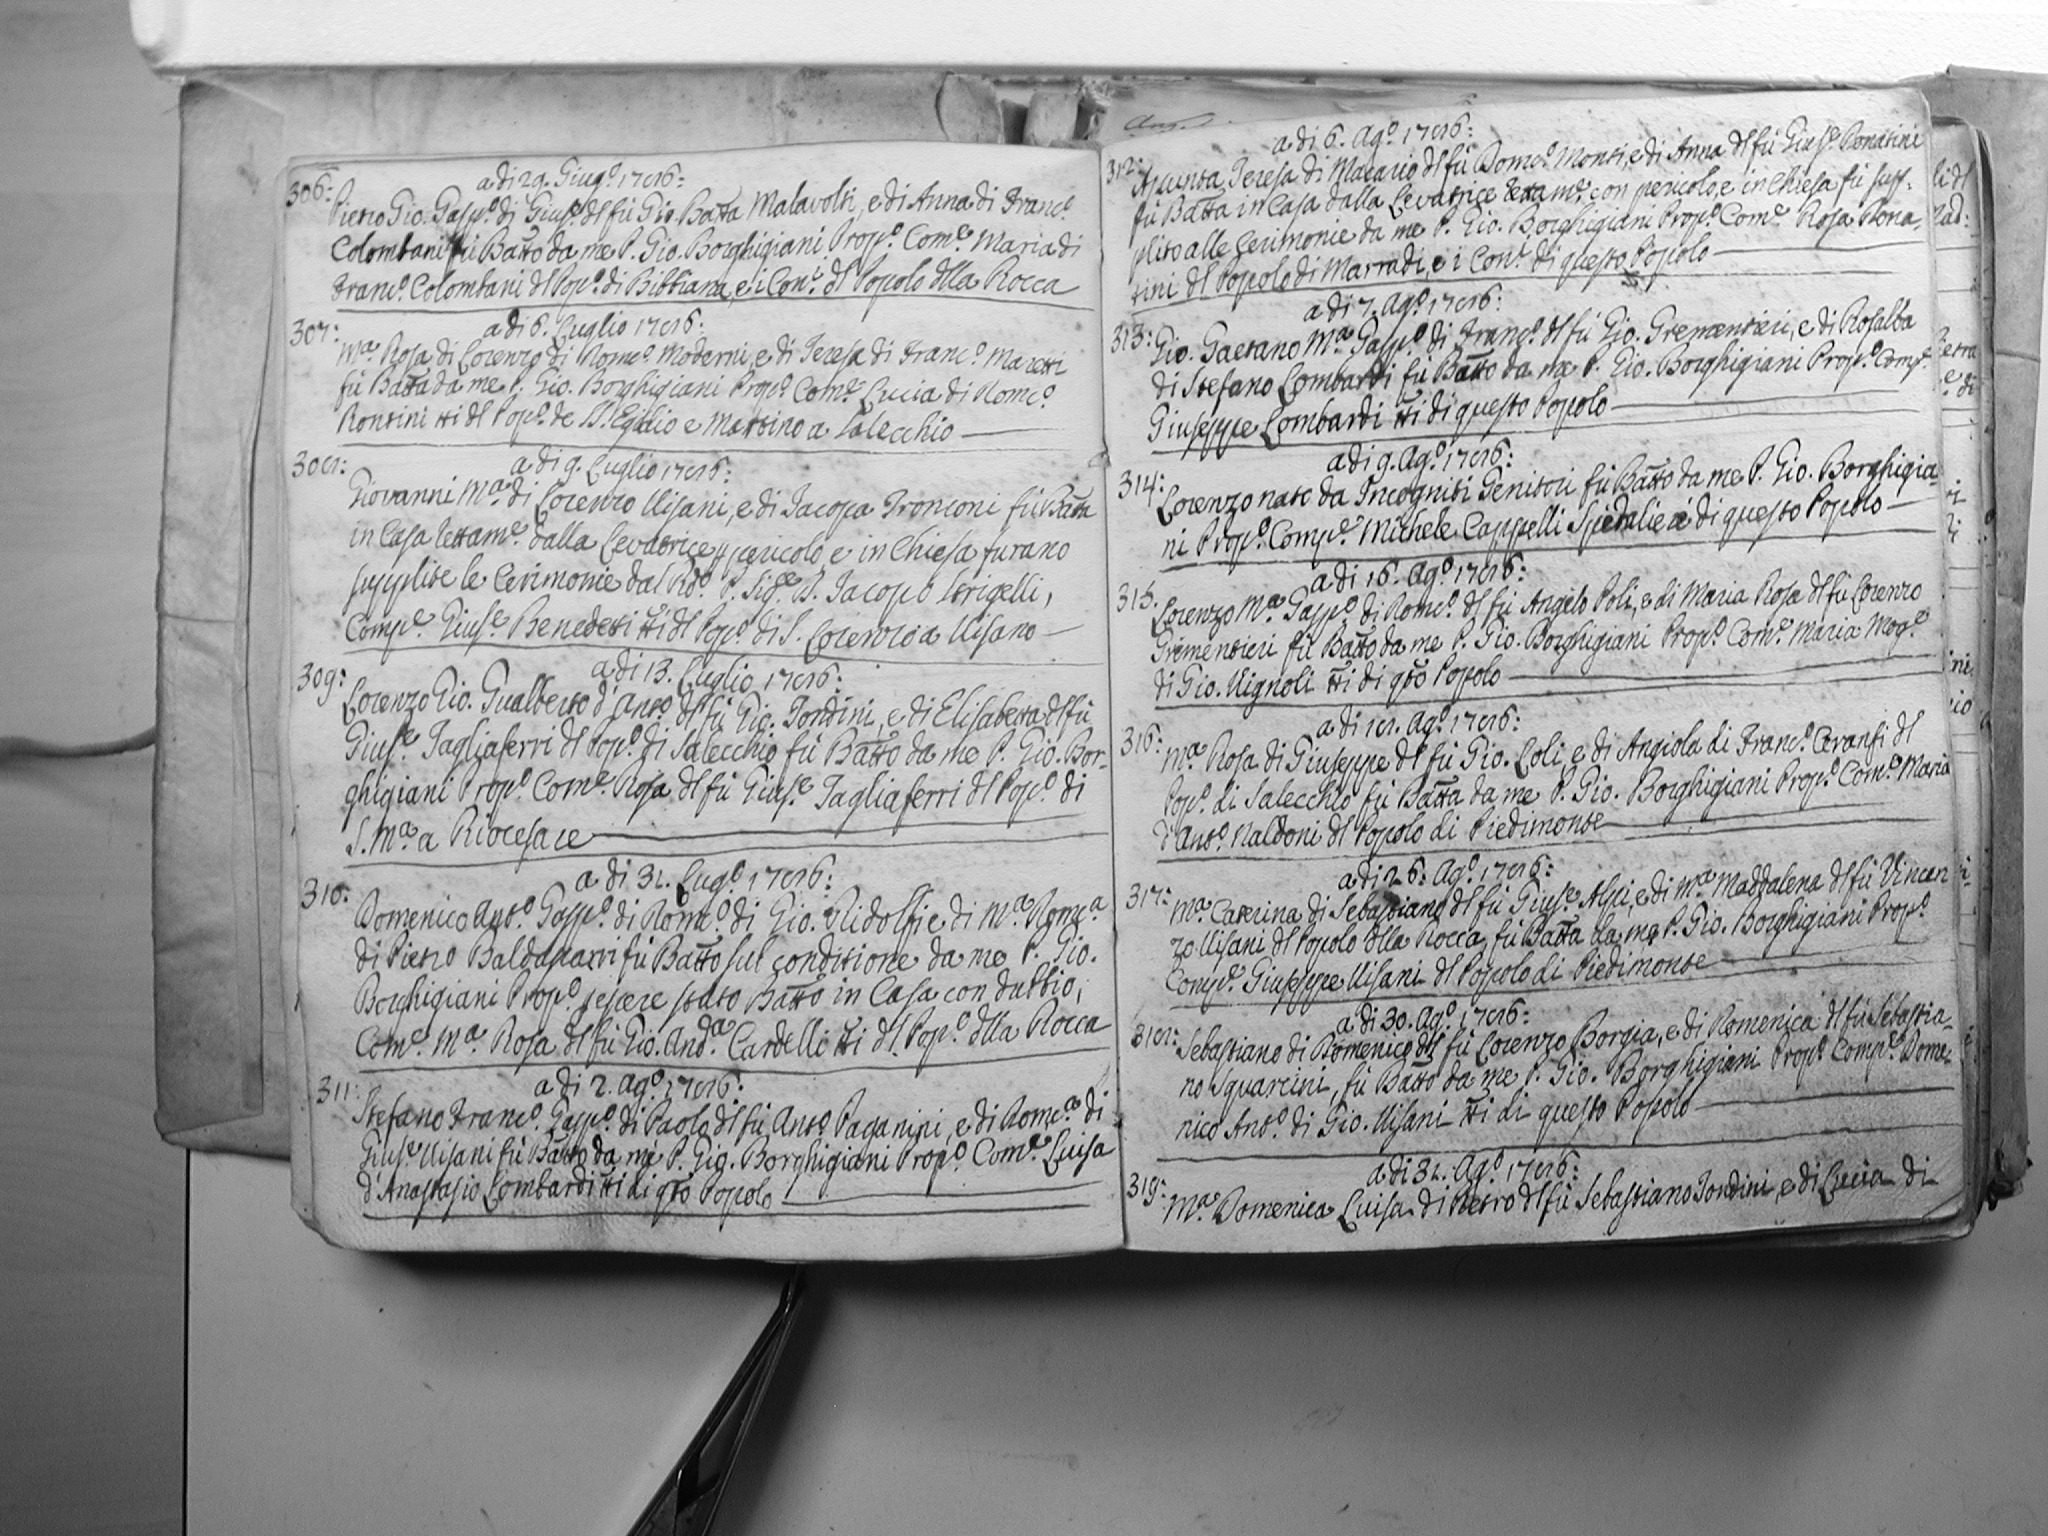 306:
a di 29. Giug.º 1786:
Pietro Gio. Gasp.º di Gius.e dl fù Gio. Batta Malavolti, e di Anna di Franc.º
Colombani fù Batto da me P. Gio. Borghigiani Prop.º Com.e Maria di
Franc.º Colombani dl Pop.º di Bibbiana, e i Con.i dl Popolo dlla Rocca
307:
a di 6. Luglio 1786:
M.a Rosa di Lorenzo di Dom.co Moderni, e di Teresa di Franc.º Maretti
fù Batta da me P. Gio. Borghigiani Prop.º Com.e Lucia di Dom.co
Rontini tti dl Pop.º de S. Egidio e Martino a Salecchio
308:
a di 9. Luglio 1786:
Giovanni M.a di Lorenzo Visani, e di Jacopa Tronconi fù Batta
in Casa tettam.e dalla Levatrice p pericolo, e in Chiesa furano
supplite le Cerimonie dal Rd.º P. Sig.e D. Jacopo Strigelli,
Comp.e Gius.e Benedetti tti dl Pop.º di S. Lorenzo a Visano
309:
a di 13. Luglio 1786:
Lorenzo Gio. Gualberto d'Ant.º dl fù Gio. Tondini, e di Elisabetta dl fù
Gius.e Tagliaferri dl Pop.º di Salecchio fù Batto da me P. Gio. Bor-
ghigiani Prop.º Com.e Rosa dl fù Gius.e Tagliaferri dl Pop.º di
S. M.a a Riocesare
310:
a di 31. Lug.º 1786:
Domenico Ant.º Gasp.º di Dom.co di Gio. Ridolfi e di M.a Dom.ca
di Pietro Baldassarri fù Batto sul conditione da me P. Gio.
Borghigiani Prop.º p essere stato Batto in Casa con dubbio,
Com.e M.a Rosa dl fù Gio. And.a Cardelli tti dl Pop.º dlla Rocca
311:
a di 2. Ag.º 1786:
Stefano Franc.º Gasp.º di Paolo dl fù Ant.º Paganini, e di Dom.ca di
Gius.e Visani fù Batto da me P. Gio. Borghigiani Prop.º Com.e Luisa
d'Anastasio Lombardi tti di qto Popolo
312:
a di 6. Ag.º 1786:
Assunta Teresa di Macario dl fù Dom.co Monti, e di Anna dl fù Gius.e Donatini
fù Batta in Casa dalla Levatrice tettam.e con pericolo, e in Chiesa fù sup-
plito alle Cerimonie da me P. Gio. Borghigiani Prop.º Com.e Rosa Dona-
tini dl Popolo di Marradi, e i Con.i di questo Popolo
313:
a di 7. Ag.º 1786:
Gio. Gaetano M.a Gasp.º di Franc.º dl fù Gio. Grementieri, e di Rosalba
di Stefano Lombardi fù Batto da me P. Gio. Borghigiani Prop.º Comp.e
Giuseppe Lombardi tti di questo Popolo
314:
a di 9. Ag.º 1786:
Lorenzo nato da Incogniti Genitori fù Batto da me P. Gio. Borghigia-
ni Prop.º Comp.e Michele Cappelli Spedaliere di questo Popolo
315.
a di 16. Ag.º 1786:
Lorenzo M.a Gasp.º di Dom.co dl fù Angelo Poli, e di Maria Rosa dl fù Lorenzo
Grementieri fù Batto da me P. Gio. Borghigiani Prop.º Com.e Maria Mog.e
di Gio. Vignoli tti di qto Popolo
316:
a di 18. Ag.º 1786:
M.a Rosa di Giuseppe dl fù Gio. Loli, e di Angiola di Franc.º Ceranfi dl
Pop.º di Salecchio fù Batta da me P. Gio. Borghigiani Prop.º Com.e Maria
d'Ant.º Naldoni dl Popolo di Piedimonte
317:
a di 26. Ag.º 1786:
M.a Caterina di Sebastiano dl fù Gius.e Alpi, e di M.a Maddalena dl fù Vincen
zo Visani dl Popolo dlla Rocca, fù Batta da me P. Gio. Borghigiani Prop.º
Comp.e Giuseppe Visani dl Popolo di Piedimonte
318:
a di 30. Ag.º 1786:
Sebastiano di Domenico dl fù Lorenzo Borgia, e di Domenica dl fù Sebastia-
no Squarcini, fù Batto da me P. Gio. Borghigiani Prop.º Comp.e Dome-
nico Ant.º di Gio. Visani tti di questo Popolo
319:
a di 31. Ag.º 1786:
M.a Domenica Luisa di Pietro dl fù Sebastiano Tondini, e di Lucia di